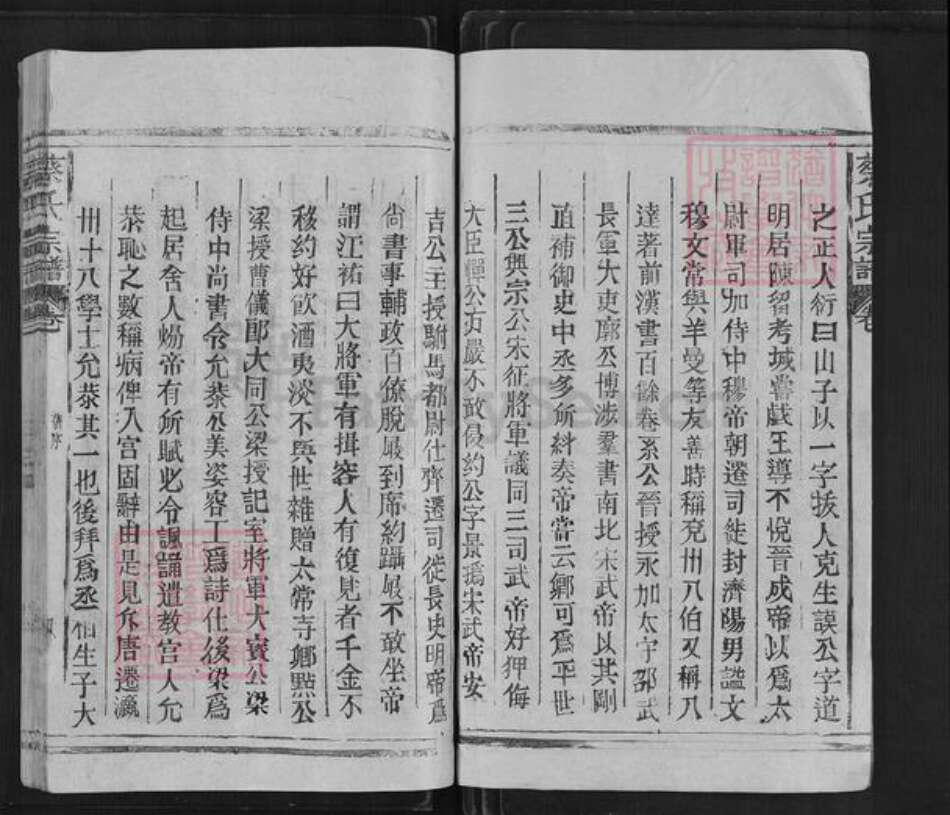 蔡氏宗譜 卷
之正人衍曰山子以一字拔人克生謨公字道
明居陳留考城嘗戲王導不悅晉成帝以爲太
尉軍司加侍中穆帝朝遷司徒封濟陽男謚文
穆文常與羊曼等友善時稱兗州八伯又稱八
達著前漢書百餘卷系公晉授永加太守邵武
長軍大吏廓公博涉羣書南北宋武帝以其剛
直補御史中丞多所糾奏帝嘗云卿可爲平世
三公興宗公宋征將軍議同三司武帝好狎侮
大臣憚公方嚴不敢侵約公字景撝宋武帝安
吉公主授駙馬都尉仕齊遷司徒長史明帝爲
尙書事輔政百僚脫屐到席約躡屐不敢坐帝
謂江祐曰大將軍有揖客人有復見者千金不
移約好飲酒夷淡不與世雜贈太常寺卿㸃公
梁授曹儀郎大同公梁授記室將軍大寶公梁
侍中尚書令允恭公美姿容工爲詩仕後梁爲
起居舍人煬帝有所賦必令諷誦遣教宮人允
恭恥之數稱病俾入宮固辭由是見斥唐遷瀛
卅十八學士允恭其一也後拜爲丞 伯生子大
蔡氏宗譜 卷
舊序